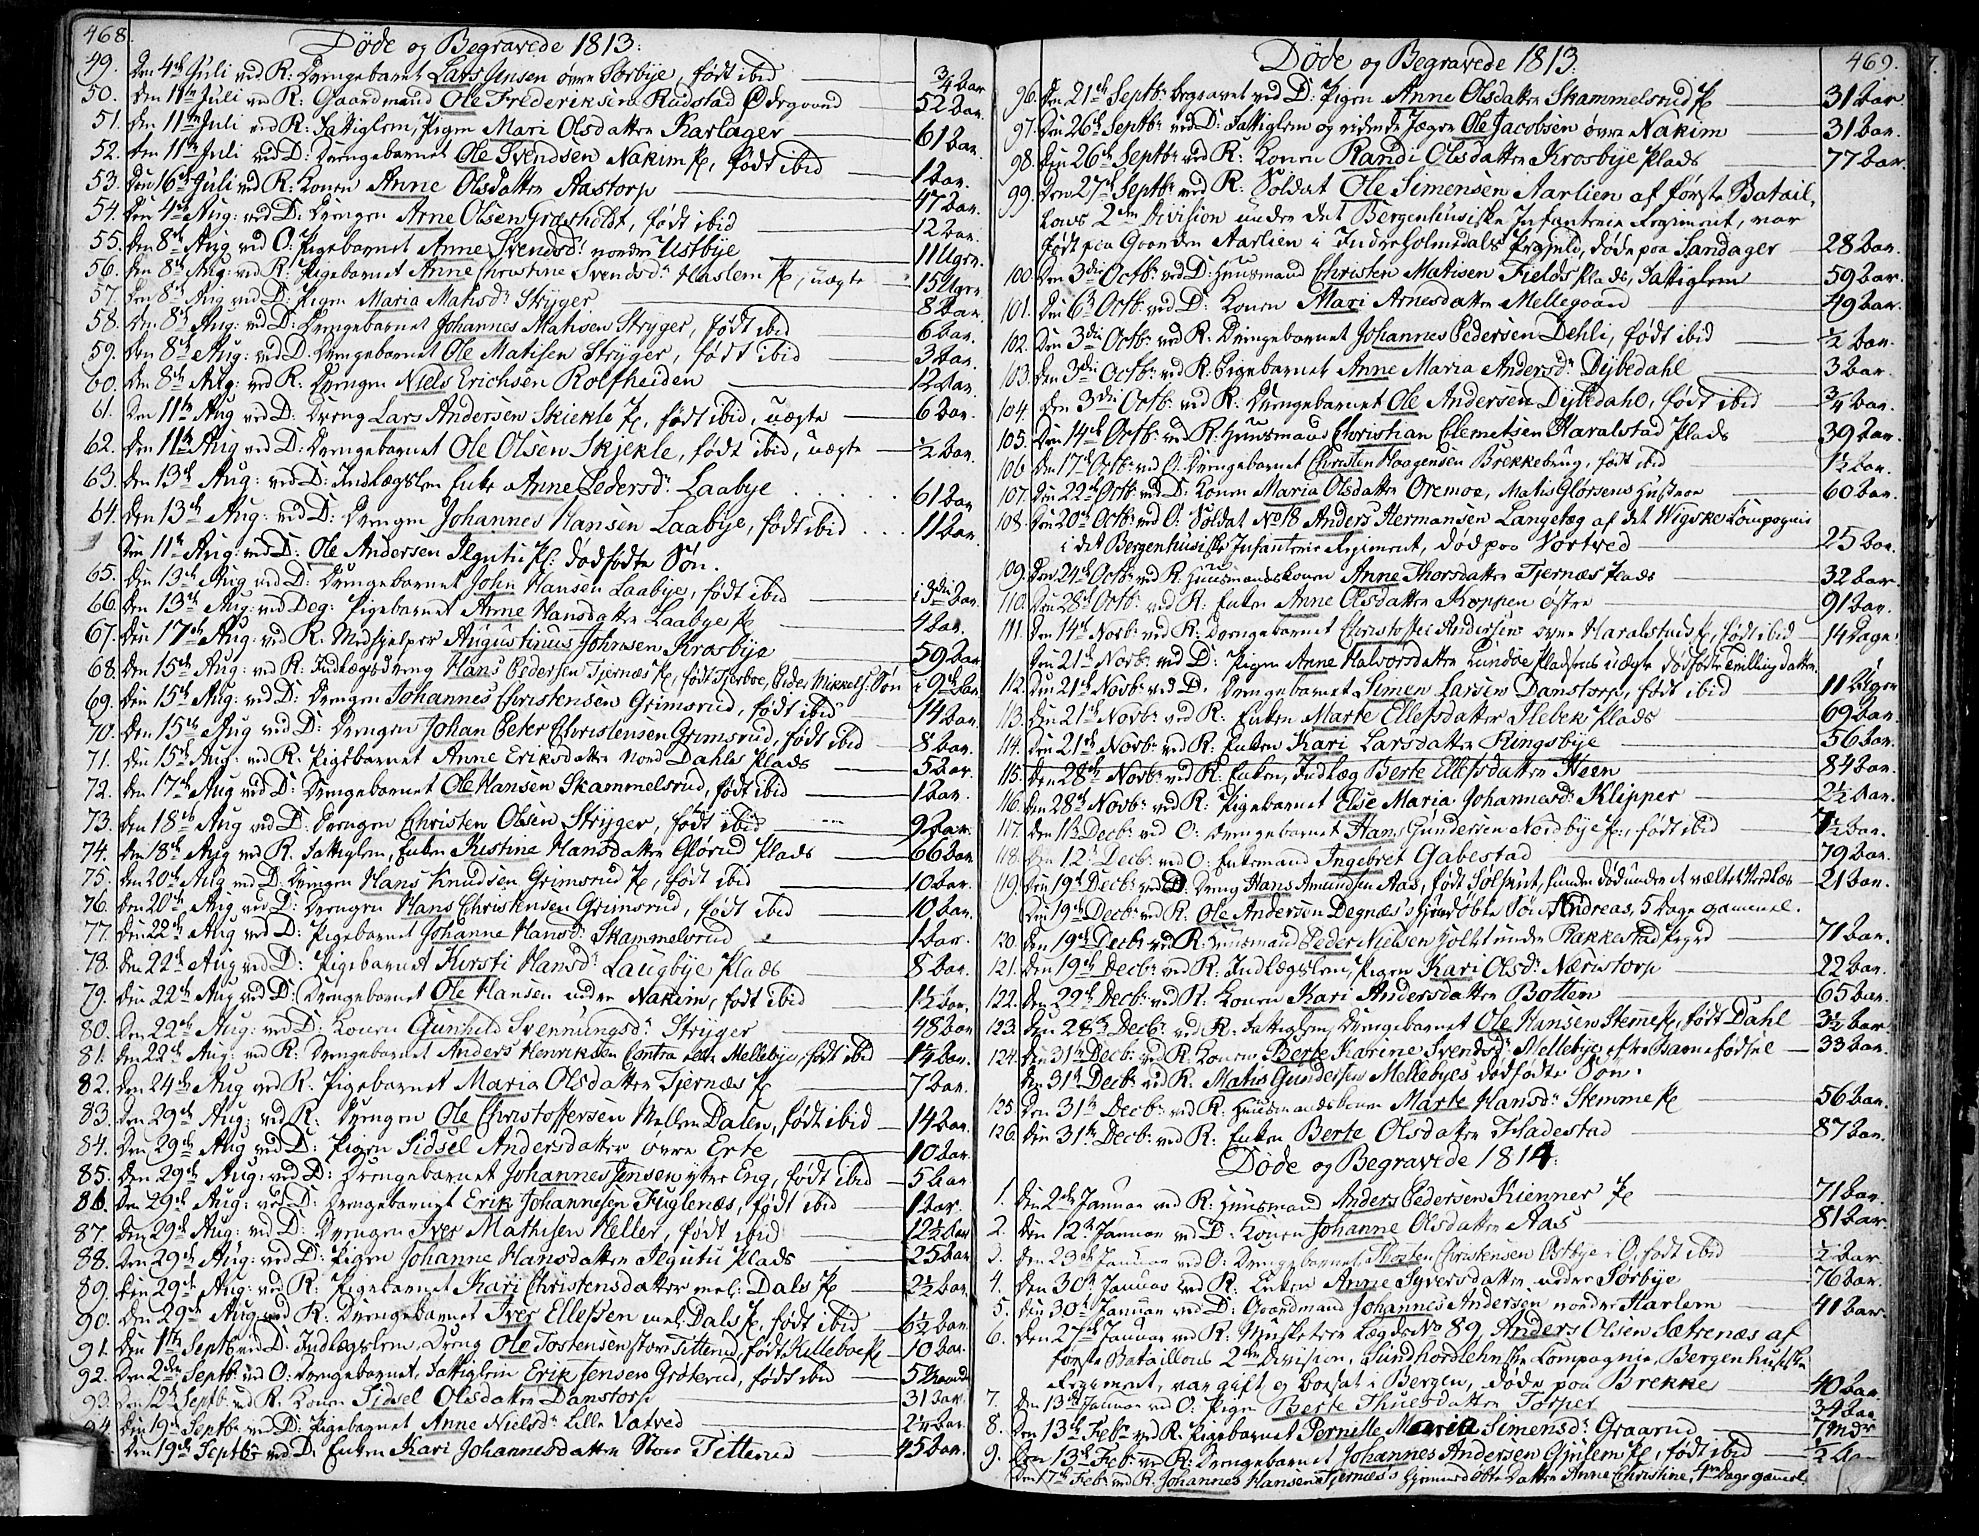 468.
Døde og Begravede 1813.
49. Den 4de Juli ved R: Drengebarnet Lars Jensen øvre Sørbye, født ibid — 3/4 Aar
50. Den 11te Juli ved R: Gaardmand Ole Frederiksen Rudstad Ødegaard — 52 Aar.
51. Den 11te Juli ved R: Fattiglem, Pigen Mari Olsdatter Karlager — 61 Aar.
52. Den 11te Juli ved D: Drengebarnet Ole Svendsen Nakim Pl, født ibid — 1 Aar.
53. Den 16de Juli ved R: Konen Anne Olsdatter Aastorp — 47 Aar.
54. Den 4de Aug: ved D: Drengen Arne Olsen Græsholdt, født ibid — 12 Aar.
55. Den 8de Aug ved O: Pigebarnet Anne Svendsdr nordre Ustbye — 11 Ugr.
56. Den 8de Aug: ved R: Pigebarnet Anne Christine Svendsdr Haslem Pl, uægte — 15 Ugr.
57. Den 8de Aug ved D: Pigen Maria Matisdr Stryger — 8 Aar.
58. Den 8de Aug: ved D: Drengebarnet Johannes Matisen Stryger, født ibid — 6 Aar.
59. Den 8de Aug: ved D. Drengebarnet Ole Matisen Stryger, født ibid — 3 Aar.
60. Den 8de Aug: ved R: Drengen Niels Erichsen Rolfheiden — 12 Aar.
61. Den 11te Aug ved D: Dreng Lars Andersen Skiekle Pl. født ibid, uægte — 6 Aar.
62. Den 11te Aug ved D: Drengebarnet Ole Olsen Skjekle, født ibid, uægte — 1/2 Aar.
63. Den 13de Aug: ved D: Indlægslem Enke Anne Pedersdr Laabye — 61 Aar
64. Den 13de Aug: ved D: Drengen Johannes Hansen Laabye, født ibid — 11 Aar.
Den 11te Aug: ved D: Ole Andersen Ilgutu Pl: dødfødte Søn.
65. Den 13de Aug ved D: Drengebarnet John Hansen Laabye, født ibid — i 3die Aar.
66. Den 13de Aug: ved Deg: Pigebarnet Anne Hansdatter Laabye Pl — 4 Aar.
67. Den 17de Aug: ved R: Medhjelper Augustinus Johnsen Krosbye — 59 Aar
68. Den 15de Aug: ved R: Indlægsdreng Hans Pedersen Tjernæs Pl, født Tjerboe, Peder Mikkels: Søn — i 9de Aar
69. Den 15de Aug: ved D: Drengen Johannes Christensen Grimsrud, født ibid — 14 Aar.
70. Den 15de Aug ved D: Drengen Johan Peter Christensen Grimsrud, født ibid — 8 Aar.
71. Den 15de Aug: ved R: Pigebarnet Anne Eriksdatter Nord Dahls Plads — 5 Aar.
72. Den 17de Aug ved D: Drengebarnet Ole Hansen Skammelsrud, født ibid — 1 Aar.
73. Den 18de Aug ved D: Drengen Christen Olsen Stryger, født ibid — 9 Aar.
74. Den 18de Aug ved R. Fattiglem, Enken Kistine Hansdatter Glørud Plads — 66 Aar
75. Den 20de Aug ved D: Drengen Hans Knudsen Grimsrud Pl, født ibid — 10 Aar.
76. Den 20de Aug ved D: Drengen Hans Christensen Grimsrud, født ibid — 10 Aar.
77. Den 22de Aug ved D: Pigebarnet Johanne Hansdr Skammelsrud — 1 Aar.
78. Den 22de Aug ved D: Pigebarnet Kirsti Hansdr Laugbye Plads — 8 Aar.
79. Den 22de Aug ved D: Drengebarnet Ole Hansen nedre Nakim, født ibid — 1 1/2 Aar.
80. Den 22de Aug: ved D: Konen Gunhild Svenningsdr Stryger — 48 Aar
81. Den 22de Aug: ved R: Drengebarnet Anders Henriksen Mellebye, født ibid — 1 1/4 Aar.
82. Den 24de Aug ved R: Pigebarnet Maria Olsdatter Tjernæs Pl — 7 Aar.
83. Den 29de Aug: ved R: Drengen Ole Christoffersen Mellem Dalen, født ibid — 14 Aar.
84. Den 29de Aug ved D: Pigen Sidsel Andersdatter øvre Erte — 10 Aar.
85. Den 29de Aug: ved D: Drengebarnet Johannes Jensen ytre Eng, født ibid — 5 Aar
86. Den 29de Aug: ved D: Drengebarnet Erik Johannesen Fuglenæs, født ibid — 1 Aar.
87. Den 29de Aug: ved D: Drengen Iver Mathisen Heller, født ibid — 12 1/2 Aar
88. Den 29de Aug: ved D: Pigen Johanne Hansdatter Ilgutu Plads — 25 Aar
89. Den 29de Aug: ved R: Pigebarnet Kari Christensdatter mel: Dals Pl — 2 1/2 Aar.
90. Den 29de Aug ved R: Drengebarnet Iver Ellefsen mel: Dals Pl, født ibid — 6 1/2 Aar.
91. Den 1te Septb ved D: Indlægslem, Dreng Ole Torstensen store Titterud, født Killeboe Pl — 10 Aar.
92. Den 2den Septb: ved O: Drengebarnet, Fattiglem Erik Jensen Grøterud, født ibid — 5
93. Den 12te Septb: ved R. Konen Sidsel Olsdatter Danstorp — 31 Aar.
94. Den 19de Septb: ved D: Pigebarnet Anne Nielsdr Lille Vatved — 2 1/4 Aar.
Den 19de Septbr ved D. Enken Kari Johannesdatter Store Titterud — 45 Aar.
469.
Døde og Begravede 1813.
96. Den 21de Septbr begravet ved D: Pigen Anne Olsdatter Skammelsrud Pl — 31 Aar
97. Den 26de Septbr ved D: Fattiglem og ridende Jæger Ole Jacobsen øvre Nakim — 31 Aar.
98. Den 26de Septbr ved R: Konen Randi Olsdatter Krosbye Plads — 77 Aar.
99. Den 27de Septbr ved R: Soldat Ole Simensen Aarlien af første Batail-
lons 2den Division under det Bergenhusiske Infanterie Regiment, var
født paa Gaarden Aarlien i Indre Holmedals Prgjeld, døde paa Sandager — 28 Aar.
100. Den 3die Octbr ved D: Huusmand Christen Matisen Fields Plads, Fattiglem — 59 Aar.
101. Den 6te Octb: ved D: Konen Mari Arnesdatter Mellegaard — 49 Aar.
102. Den 3die Octbr ved R: Drengebarnet Johannes Pedersen Dehli, født ibid — 1/2 Aar.
103. Den 3die Octbr ved R: Pigebarnet Anne Maria Andersdr Dybedahl — 3 Aar.
104. Den 3die Octb: ved R: Drengebarnet Ole Andersen Dybedahl, født ibid — 3/4 Aar.
105. Den 14de Octbr ved R: Huusmand Christian Clemetsen Haralstad Plads — 39 Aar.
106. Den 17de Octbr ved O: Drengebarnet Christen Haagensen Brekkebrug, født ibid — 1 1/2 Aar.
107. Den 22de Octbr ved D: Konen Maria Olsdatter Oremoe, Matis Glørsens Hustroe — 60 Aar.
108. Den 20de Octbr ved O: Soldat No 18 Anders Hermansen Langetæg af det Wigske Compagnie
i det Bergenhusiske Infanterie Regiment, død paa Vortved — 25 Aar.
109. Den 24de Octbr ved R: Huusmandskonen Anne Thorsdatter Tjernæs Plads — 32 Aar
110. Den 28de Octbr ved R: Enken Anne Olsdatter Koppen østre — 91 Aar.
111. Den 14de Novbr ved R: Drengebarnet Christoffer Andersen øvre Haralstad Pl, født ibid — 14 Dage
Den 21de Novbr ved D: Pigen Anne Halvorsdatter Lundøe Pladsens uægte dødfødte Tvillingdatter.
112. Den 21de Novbr ved D. Drengebarnet Simen Larsen Danstorp, født ibid — 11 Uger
113. Den 21de Novbr ved R: Enken Marte Ellefsdatter Ilebek Plads — 69 Aar.
114. Den 21de Novbr ved R: Enken Kari Larsdatter Ringsbye — 56 Aar.
115. Den 28de Novbr ved R: Enken, Indlæg Berte Ellefsdatter Heen — 84 Aar
116. Den 28de Novbr ved R: Pigebarnet Else Maria Johannesdr Klipper — 2 1/2 Aar.
117. Den 11te Decbr ved O: Drengebarnet Hans Gundersen Nordbye Pl:, født ibid — 1 1/2 Aar.
118. Den 12te Decbr ved O: Enkemand Ingebret Gabestad — 79 Aar.
119. Den 19de Decbr ved D: Dreng Hans Amundsen Aas, født Sølfnit, funden død under et væltet — 21 Aar.
Den 19de Decbr ved R: Ole Andersen Degnæs's hjemdøbte Søn Andreas, 5 Dage gammel.
120. Den 19de Decbr ved R: Huusmand Peder Nielsen under Rakkestad Prgd — 71 Aar.
121. Den 19de Decbr ved R: Indlægslem, Pigen Kari Olsdr Næristorp — 22 Aar.
122. Den 22de Decbr ved R: Konen Kari Andersdatter Botten — 65 Aar.
123. Den 28de Decbr ved R: Fattiglem, Drengebarnet Ole Hansen Stemme Pl, født Dahl — 3 1/2 Aar
124. Den 31te Decbr ved R: Konen Berte Karine Svendsdr Mellebye, efter Barnefødsel — 33 Aar.
Den 31te Decbr ved R. Matis Gundersen Mellebyes dødfødte Søn.
125. Den 31te Decbr ved R: Huusmandskonen Marte Hansdr Stemme Pl — 56 Aar.
126. Den 31te Decbr ved R: Enken Berte Olsdatter Fladestad — 87 Aar.
Døde og Begravede 1814.
1. Den 2den Januar ved R: Huusmand Anders Pedersen Kienner Pl — 71 Aar.
2. Den 12te Januar ved D: Konen Johanne Olsdatter Aas — 81 Aar.
3. Den 23de Januar ved O: Drengebarnet Thosten Christensen Østbye i O, født ibid — 1/2 Aar
4. Den 30te Januar ved R: Enken Anne Syversdatter nedre Sørbye — 76 Aar.
5. Den 30te Januar ved D: Gaardmand Johannes Andersen nordre Harlem — 41 Aar
6. Den 27de Januar ved R: Musketeer Lægds No 89, Anders Olsen Sætrenæs af
første Bataillons 2den Division, Sundhordlehnske Compagnie, Bergenhusiske
Regiment, var gift og bosat i Bergen, døde paa Brekke — 40 Aar.
7. Den 13de Januar ved O: Pigen Berte Thuesdatter Torper — 34 Aar
8. Den 13de Febr ved R: Pigebarnet Pernille Maria Simensdr Graarud — 7 Mdr
9. Den 13de Febr ved R: Drengebarnet Johannes Andersen Gjulem Pl, født ibid — 1/2 Aar
Den 17de Febr ved R: Johannes Hansen Tjernæs's hjemmedøbte Datter Anne Christine, Dage gammel.